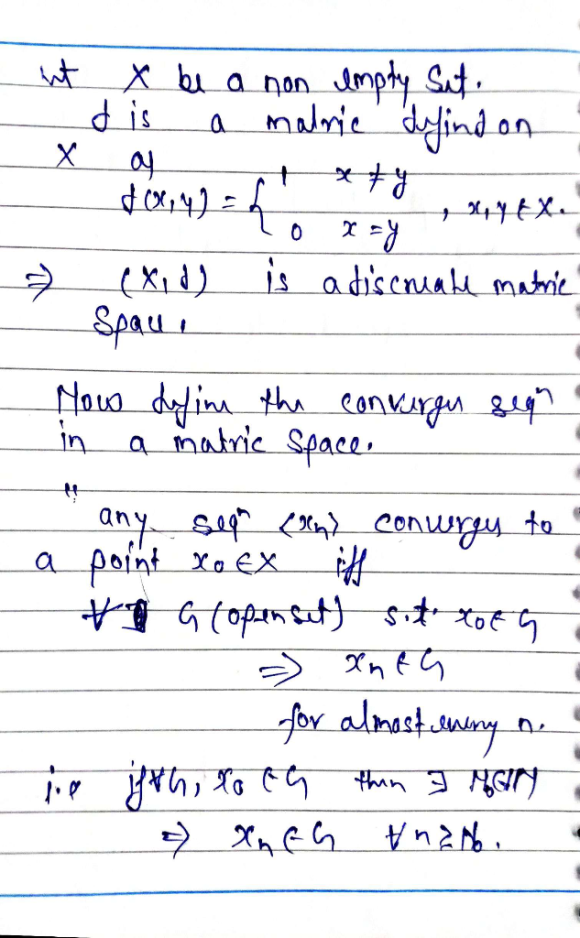 let X be a non empty Set.
d is a matric defind on
X as
d(x,y) = { 1 x ≠ y
0 x = y , x,y ∈ X.
⇒ (X,d) is a discreate matric
Space.
Now define the converges seqⁿ
in a matric Space.
"any seqⁿ <xn> converges to
a point x₀ ∈ X iff
∀ G (open set) s.t. x₀ ∈ G
⇒ xn ∈ G
for almost every n.
i.e if ∀ G, x₀ ∈ G then ∃ N₀∈ℕ
⇒ xn ∈ G ∀ n ≥ N₀.